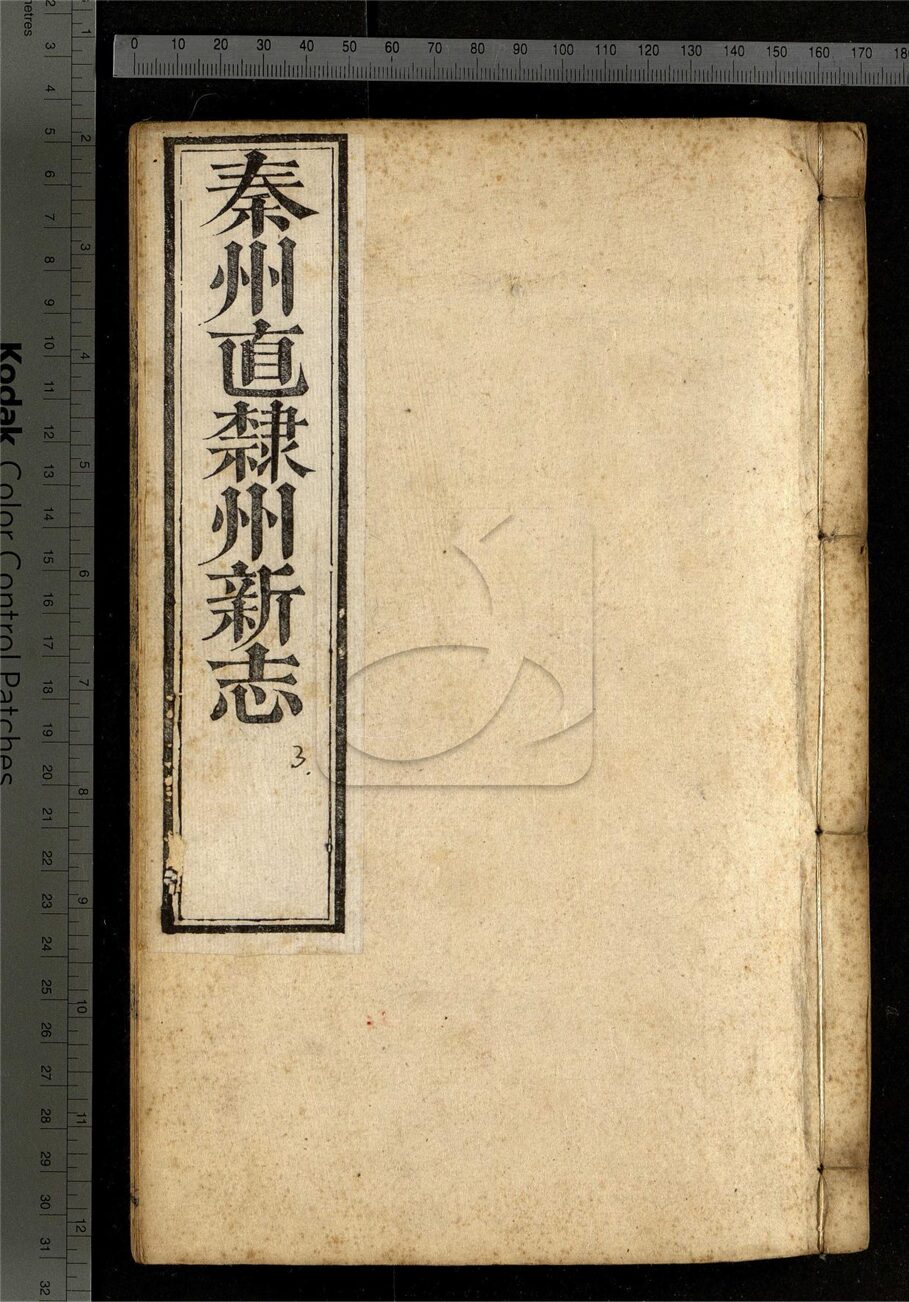 秦州直隸州新志
3.
0 10 20 30 40 50 60 70 80 90 100 110 120 130 140 150 160 170 180
Kodak Color Control Patches
metres
2 3 4 5 6 7 8 9 10 11 12 13 14 15 16 17 18 19 20 21 22 23 24 25 26 27 28 29 30 31 32
1 2 3 4 5 6 7 8 9 10 11 12